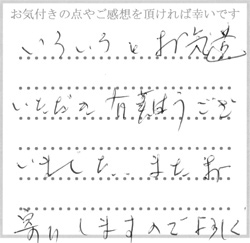 お気付きの点やご感想を頂ければ幸いです
いろいろとお気遣
いただき有難うござ
いました。またお
寄りしますのでよろしく